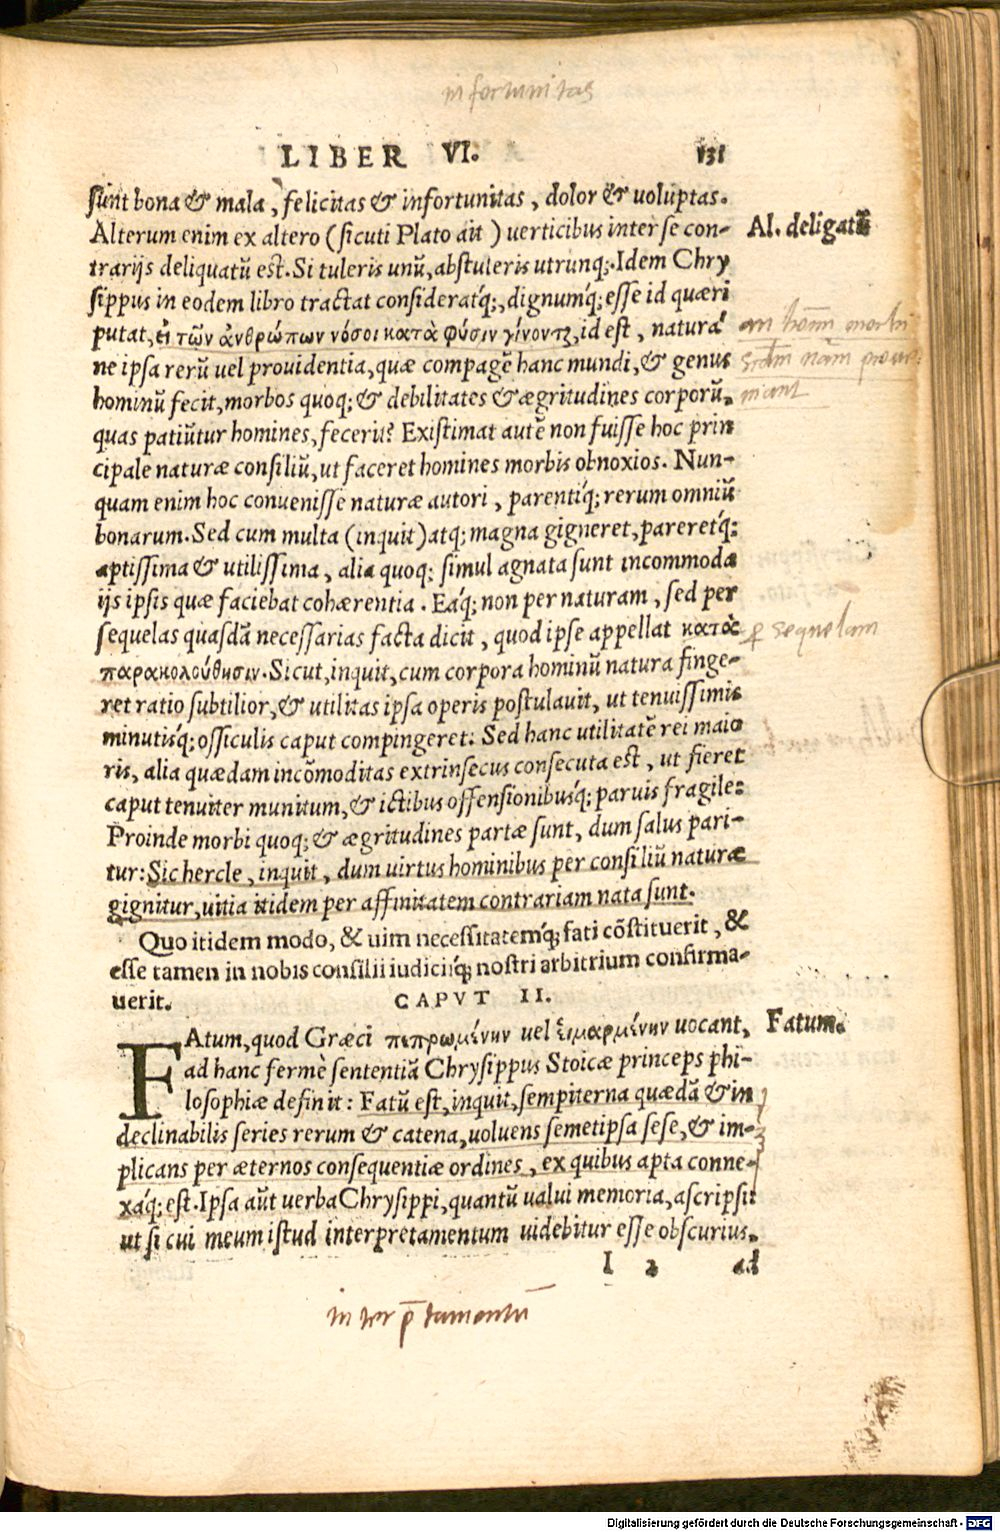 infortunitas
LIBER VI. 131
sunt bona & mala, felicitas & infortunitas, dolor & uoluptas.
Alterum enim ex altero (sicuti Plato ait) uerticibus inter se con-
Al. deligatũ
trarijs deliquatũ est. Si tuleris unũ, abstuleris utrunq;. Idem Chry
sippus in eodem libro tractat considerat'q;, dignum'q; esse id quæri
putat, εἰ τῶν ἀνθρώπων νόσοι κατὰ φύσιν γίνονται, id est, natura'
ne ipsa rerũ uel prouidentia, quæ compagẽ hanc mundi, & genus
hominũ fecit, morbos quoq; & debilitates & ægritudines corporũ,
quas patiũtur homines, fecerit? Existimat autẽ non fuisse hoc prin
cipale naturæ consiliũ, ut faceret homines morbis obnoxios. Nun-
quam enim hoc conuenisse naturæ autori, parenti'q; rerum omniũ
bonarum. Sed cum multa (inquit) atq; magna gigneret, pareret'q;
aptissima & utilissima, alia quoq; simul agnata sunt incommoda
ijs ipsis quæ faciebat cohærentia. Ea'q; non per naturam, sed per
sequelas quasdã necessarias facta dicit, quod ipse appellat κατὰ
ꝑ sequelam
παρακολούθησιν. Sicut, inquit, cum corpora hominũ natura finge-
ret ratio subtilior, & utilitas ipsa operis postulauit, ut tenuissimis
minutis'q; ossiculis caput compingeret: Sed hanc utilitatẽ rei maio
ris, alia quædam incõmoditas extrinsecus consecuta est, ut fieret
caput tenuiter munitum, & ictibus offensionibus'q; paruis fragile:
Proinde morbi quoq; & ægritudines partæ sunt, dum salus pari-
tur: Sic hercle, inquit, dum uirtus hominibus per consiliũ naturæ
gignitur, uitia itidem per affinitatem contrariam nata sunt.
Quo itidem modo, & uim necessitatem'q; fati cõstituerit, &
esse tamen in nobis consilii iudicii'q; nostri arbitrium confirma-
uerit. CAPVT II.
FAtum, quod Græci πεπρωμένην uel εἱμαρμένην uocant,
Fatum.
ad hanc fermè sententiã Chrysippus Stoicæ princeps phi-
losophiæ definit: Fatũ est, inquit, sempiterna quædã & in
declinabilis series rerum & catena, uoluens semetipsa sese, & im-
plicans per æternos consequentiæ ordines, ex quibus apta conne-
xa'q; est. Ipsa aũt uerba Chrysippi, quantũ ualui memoria, ascripsi:
ut si cui meum istud interpretamentum uidebitur esse obscurius,
I 2 ad
interp̄tamentũ
Digitalisierung gefördert durch die Deutsche Forschungsgemeinschaft - DFG